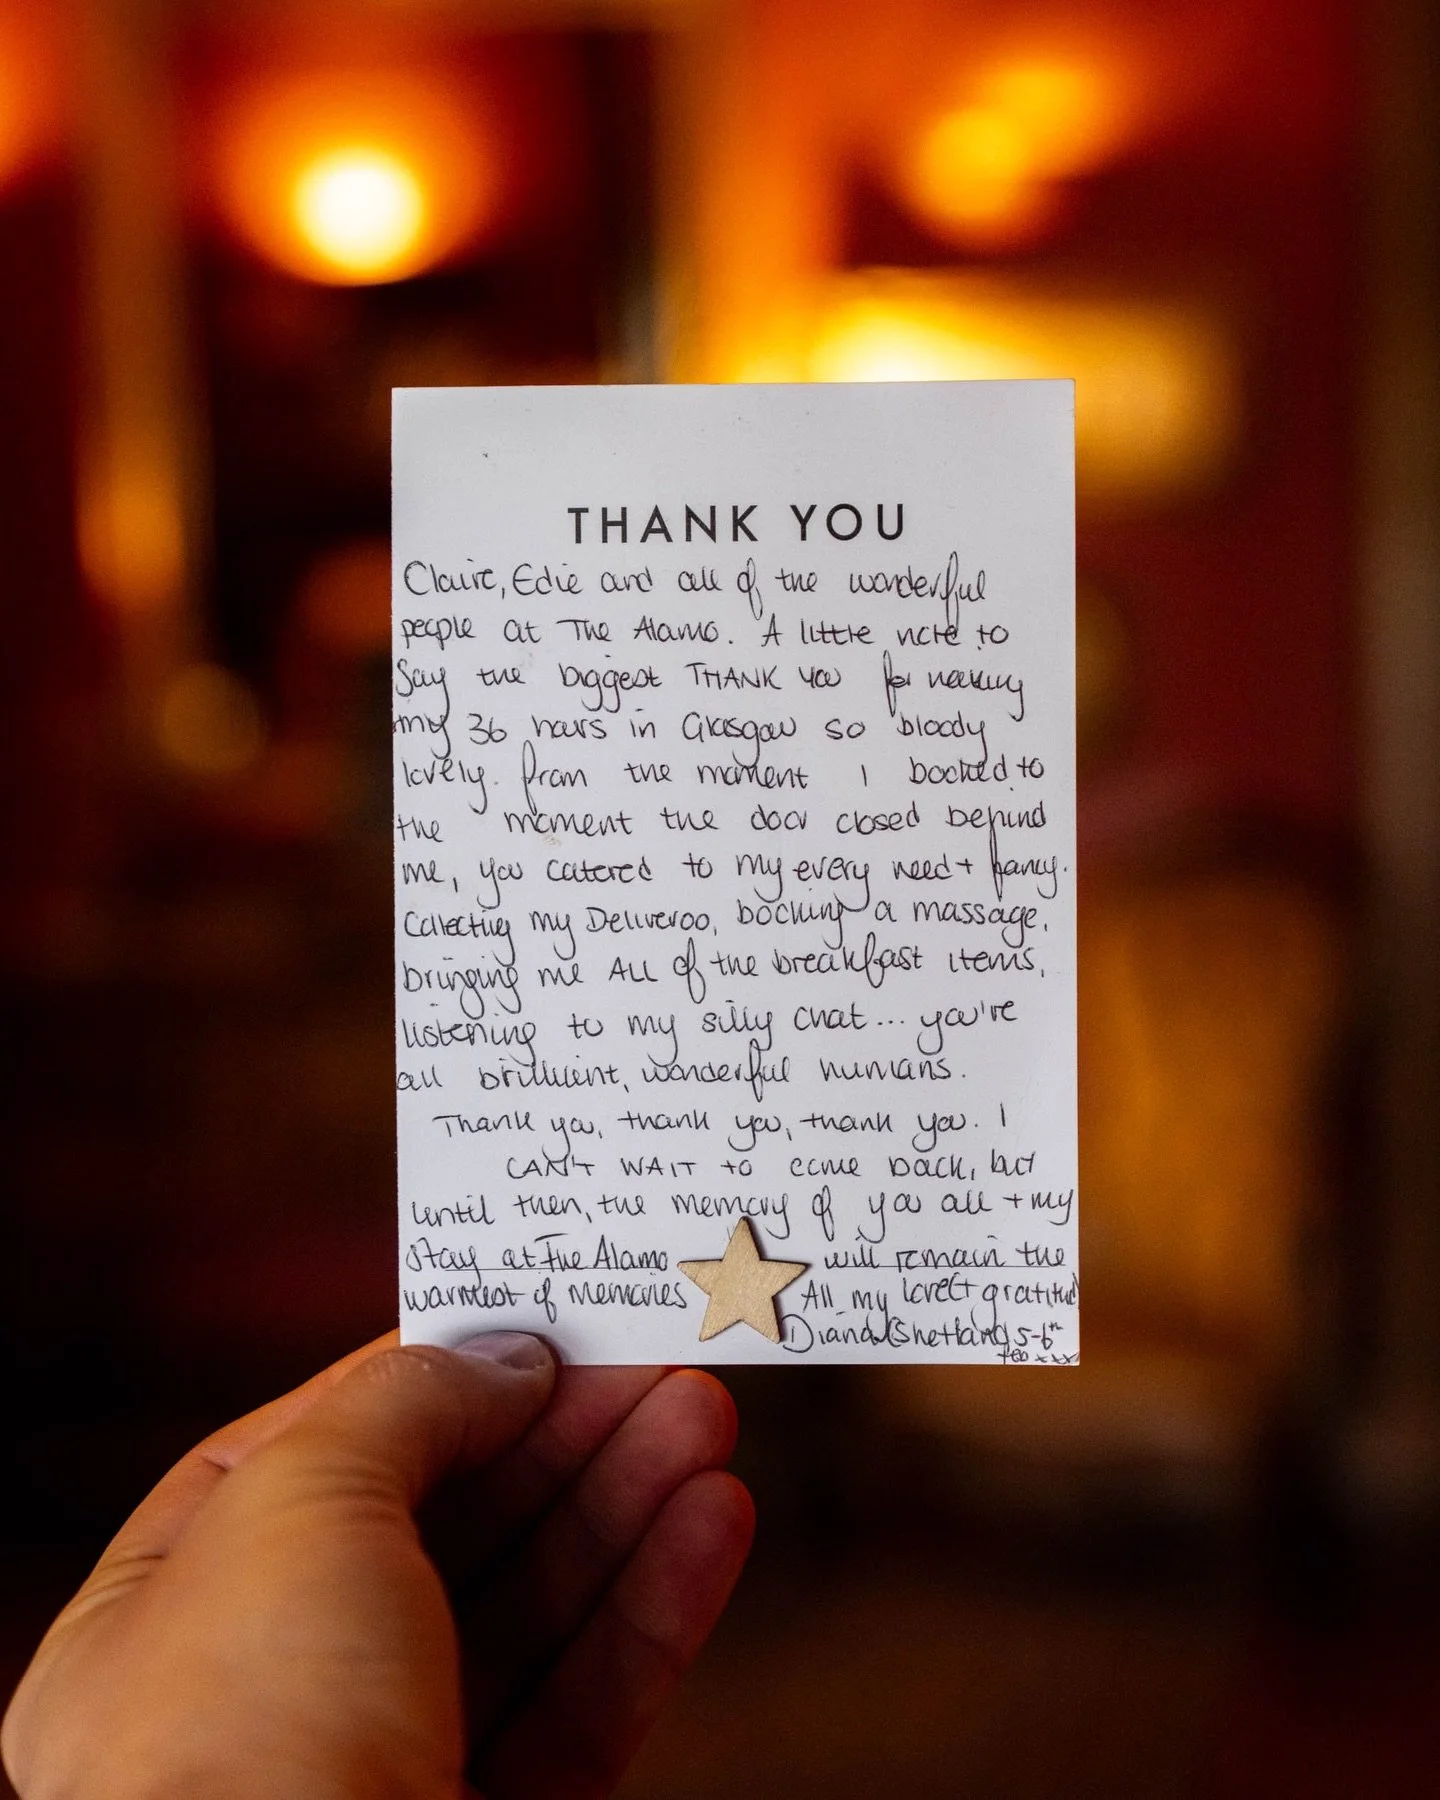 THANK YOU
Claire, Edie and all of the wonderful
people at The Alamo. A little note to
Say the biggest THANK YOU for making
my 36 hours in Glasgow so bloody
lovely. from the moment I booked to
the moment the door closed behind
me, you catered to my every need + fancy.
Collecting my Deliveroo, booking a massage,
bringing me ALL of the breakfast items,
listening to my silly chat... you're
all brilliant, wonderful humans.
Thank you, thank you, thank you. I
CAN'T WAIT to come back, but
until then, the memory of you all + my
stay at The Alamo will remain the
warmest of memories All my love + gratitude
Diana (Shetland) 5-6th
Feb xxx